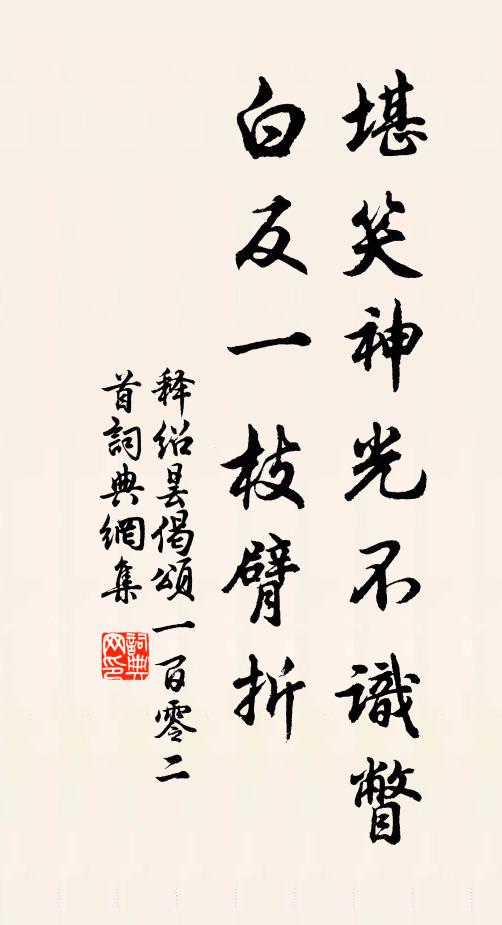 堪笑神光不識瞥
白反一枝臂折
释绍昙偈頌一百零二
首詞典網集
詞典网印